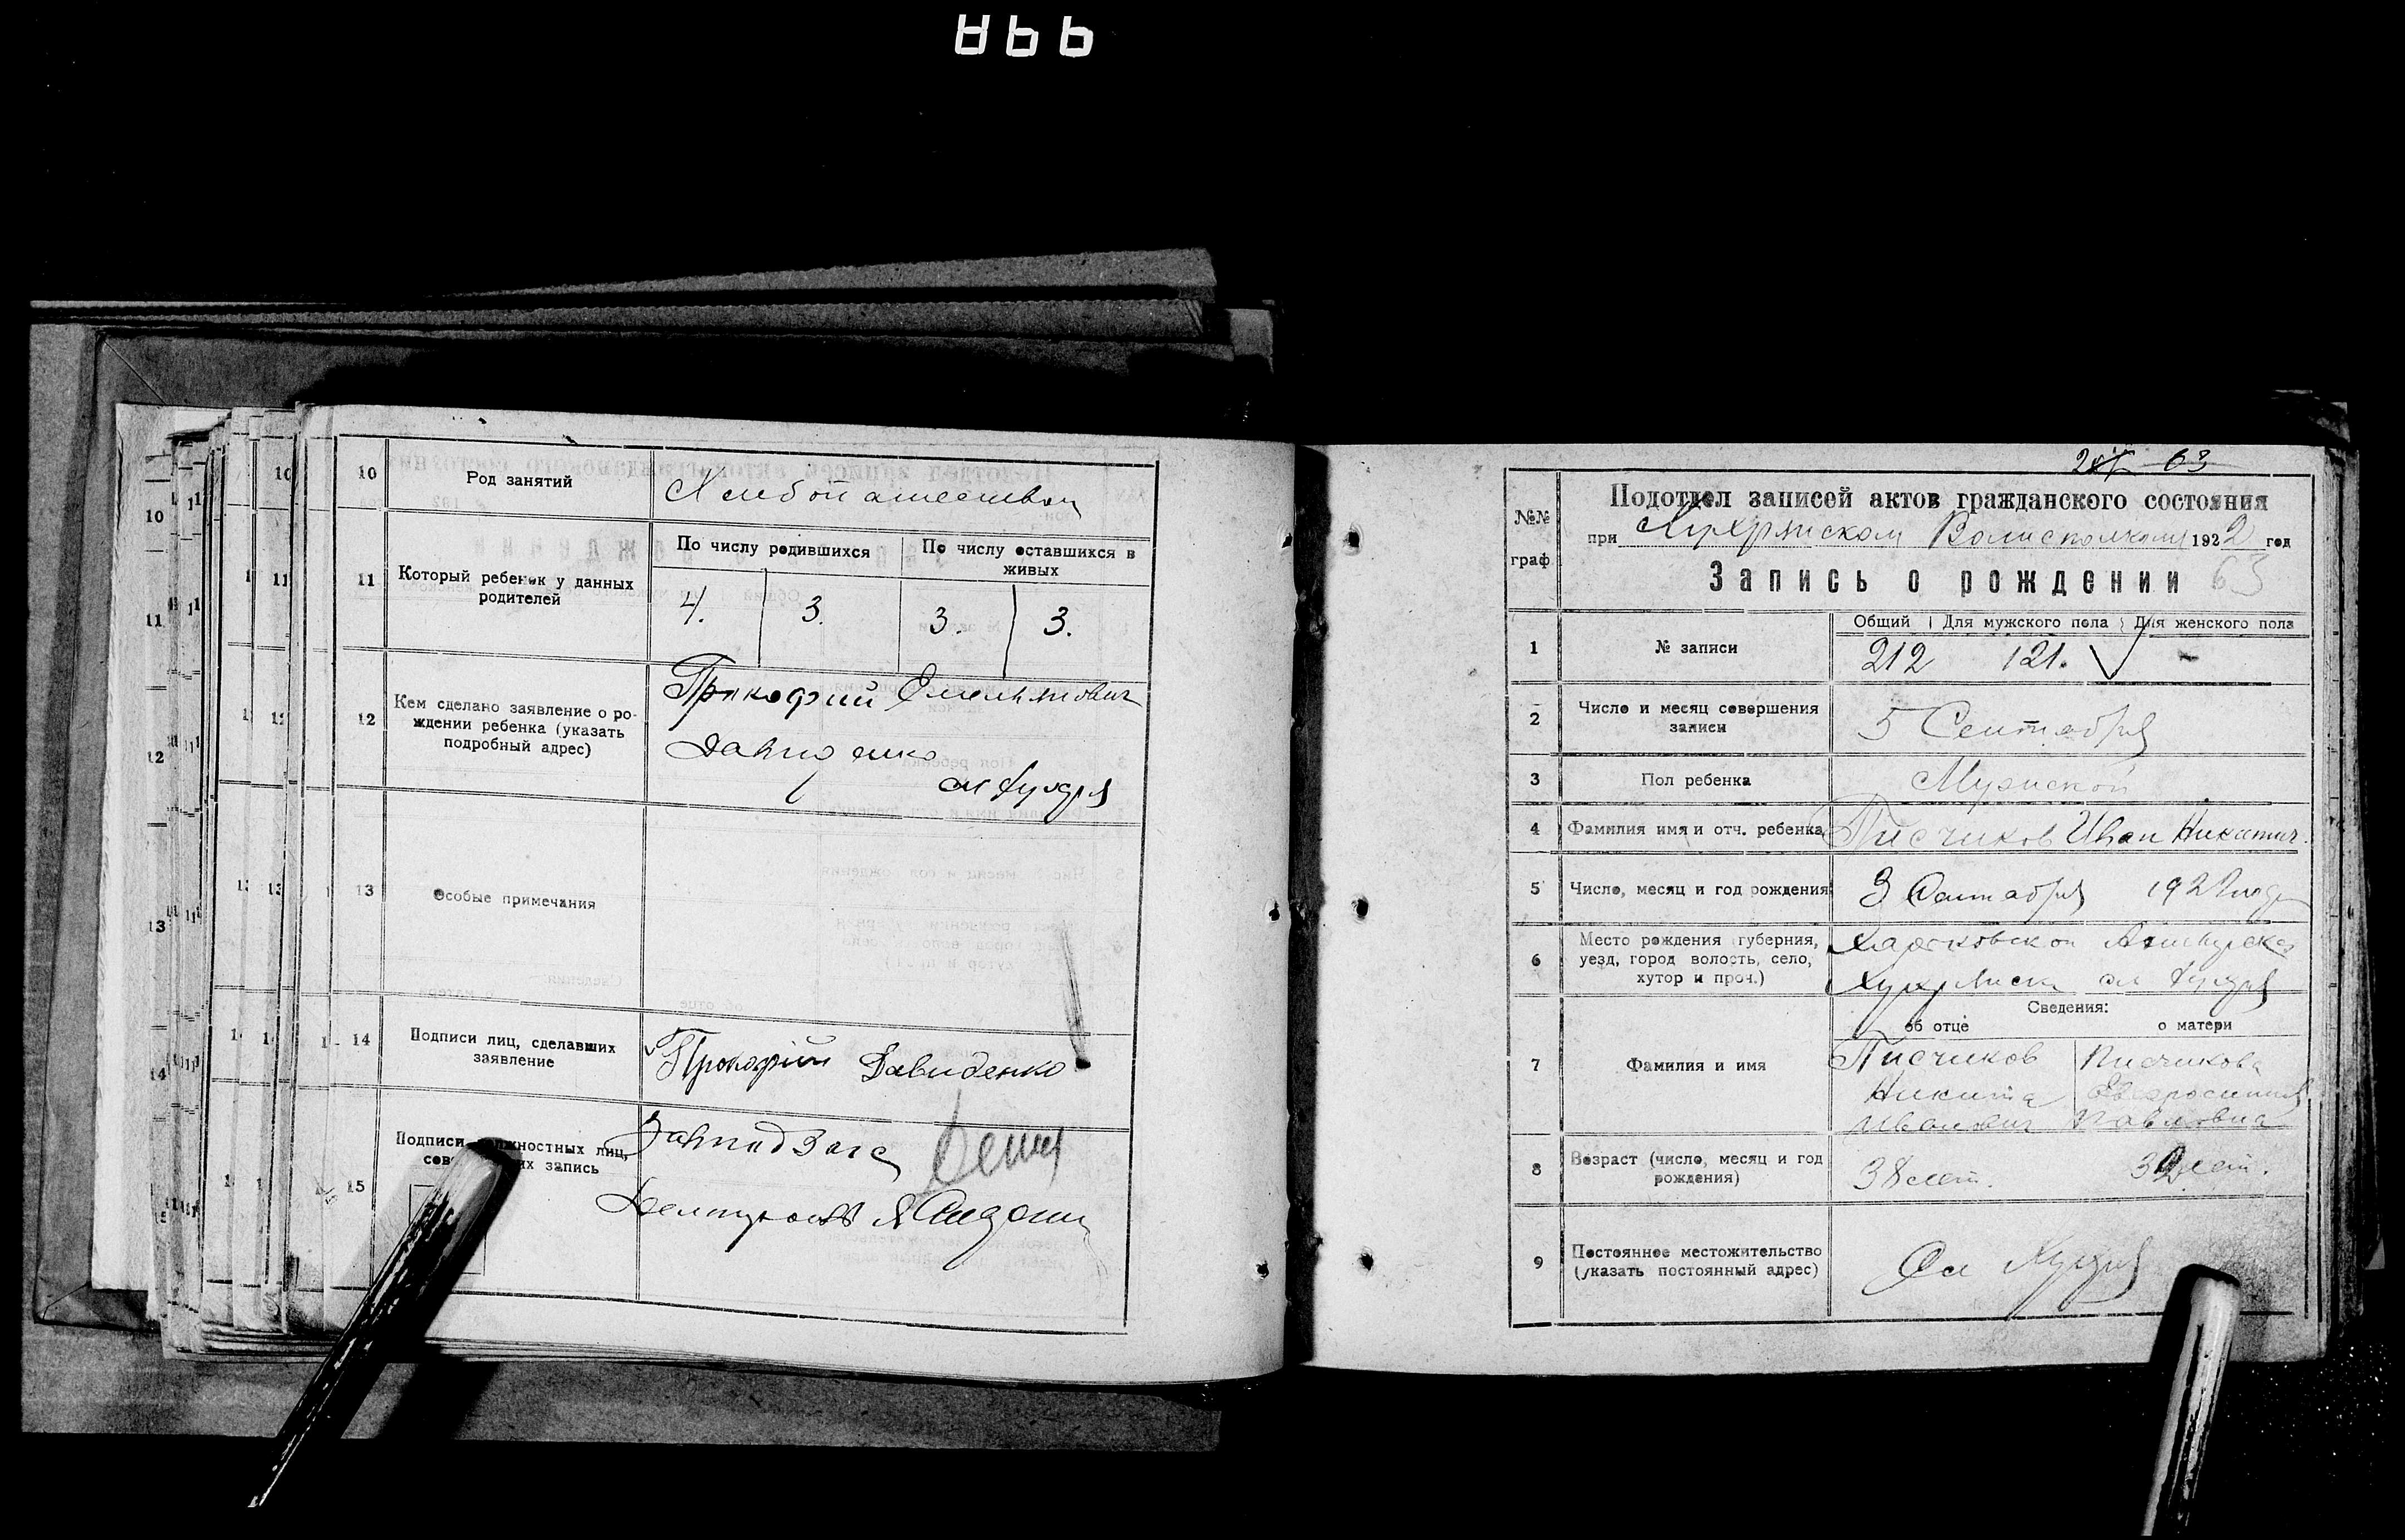 10
Род занятий
Хлебопашеством
11
Который ребенок у данных родителей
По числу родившихся
По числу оставшихся в живых
4. 3. 3. 3.
12
Кем сделано заявление о ро-
ждении ребенка (указать
подробный адрес)
Прокофий Омельянович
Давиденко
13
Особые примечания
14
Подписи лиц, сделавших
заявление
Прокофий Давиденко
15
Подписи должностных лиц,
запись
63
№№
граф.
Подотдел записей актов гражданского состояния
при Хухрянском Волисполкоме 1922 год
Запись о рождении 63
1
№ записи
Общий Для мужского пола Для женского пола
212 121. -
2
Число и месяц совершения
записи
5 Сентября
3
Пол ребенка
Мужской
4
Фамилия имя и отч. ребенка
Писчиков Иван Никитич.
5
Число, месяц и год рождения
3 Сентября 1922 года
6
Место рождения (губерния,
уезд, город волость, село,
хутор и проч.)
Харьковской Ахтырско
7
Фамилия и имя
Сведения:
об отце о матери
Писчиков Писчикова
Никита Евфросиния
Иванович Павловна
8
Возраст (число, месяц и год
рождения)
38 лет. 32 лет.
9
Постоянное местожительство
(указать постоянный адрес)